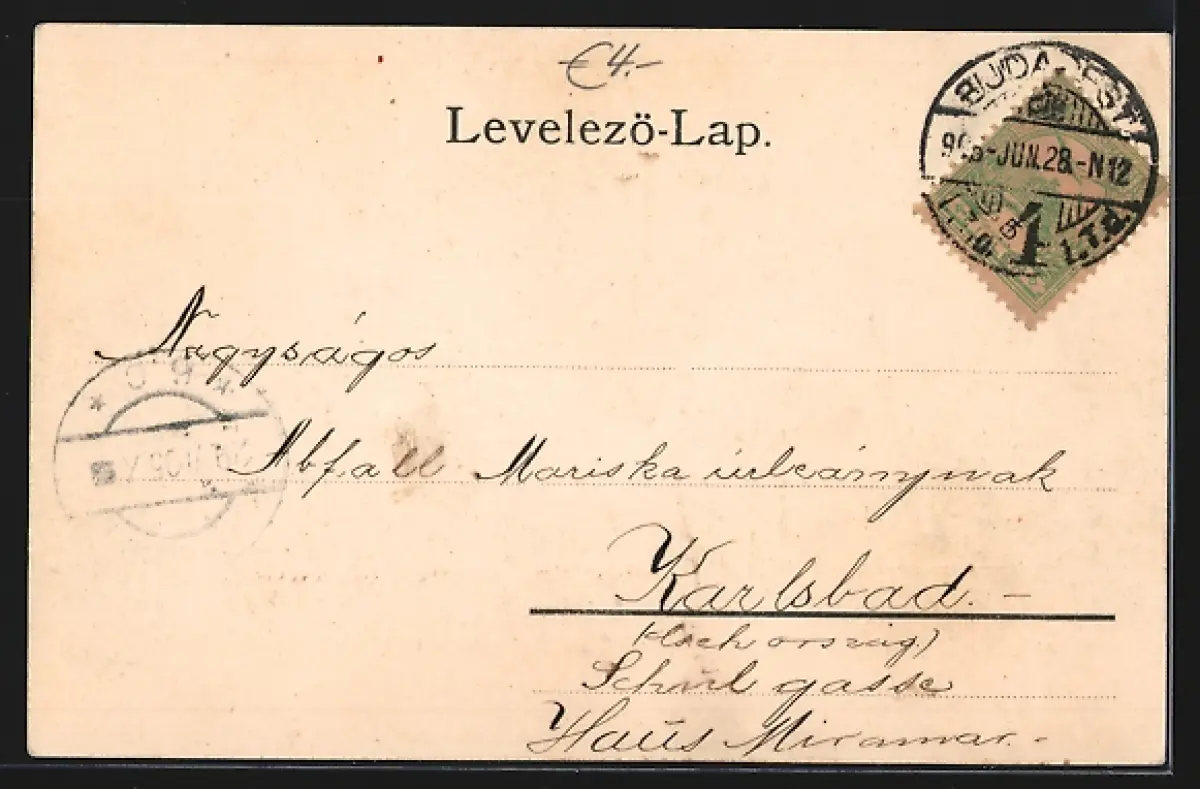 €4.-
Levelezö-Lap.
BUDAPEST
905-JUN.28.-N12
Nagyságos
Abfall Mariska úrleánynak
Karlsbad.-
(Csehország.)
Schul gasse
Haus Miramar.-